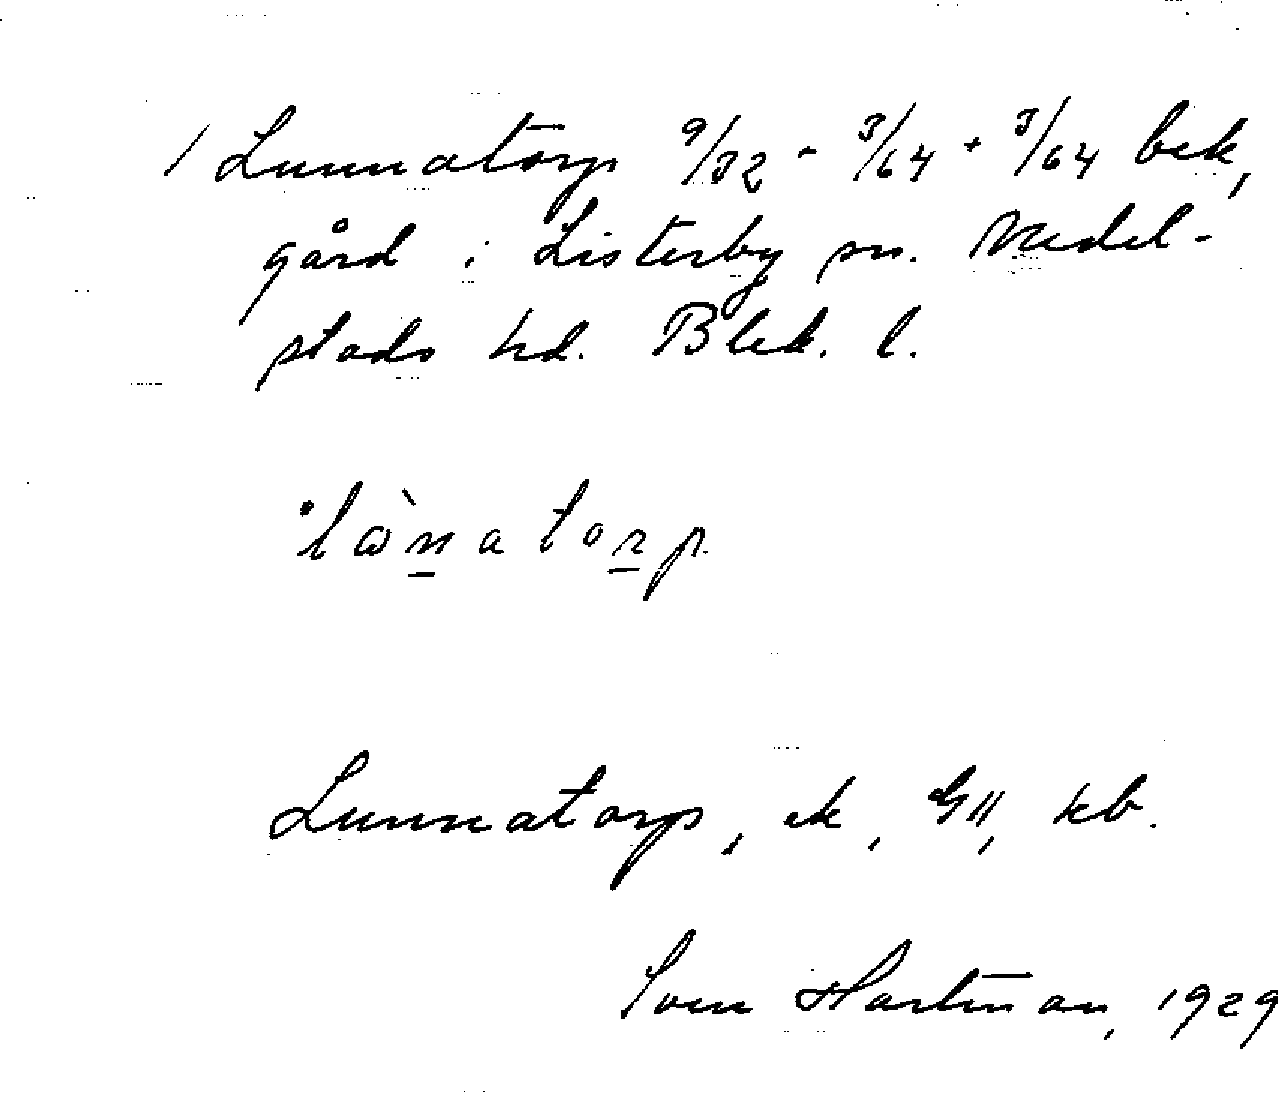 / Lunnatorp 9/32 - 3/64 + 3/64 bek,
gård i Listerby sn. Medel-
stads hd. Blek. l.
lὼnatorp
Lunnatorp, ek, GII, kb.
Sven Hartman, 1929